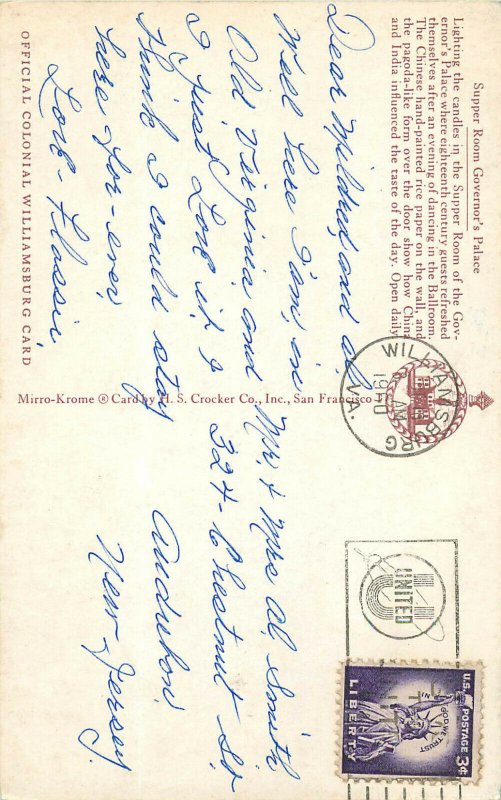 Supper Room Governor's Palace
Lighting the candles in the Supper Room of the Gov-
ernor's Palace where eighteenth century guests refreshed
themselves after an evening of dancing in the Ballroom.
The Chinese hand-painted rice paper on the wall, and
the pagoda-like form over the door show how China
and India influenced the taste of the day. Open daily
Dear Mildred and al,
Well here I am, in
Old Virginia and
I just Love it, I
think I could stay
here for-ever
Love- Flossie,
OFFICIAL COLONIAL WILLIAMSBURG CARD
Mirro-Krome ® Card by H. S. Crocker Co., Inc., San Francisco 1
WILLIAMSBURG
AM
1960
VA.
UNITED
U.S. POSTAGE 3¢
IN GOD WE TRUST
LIBERTY
Mr, & Mrs Al, Smith
324- Chestnut St.
Audubon,
New-Jersey.